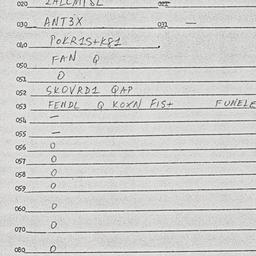 020 021
030 ANT3X 031 —
040 POKR1S+K81
050 FAN Q
051 O
052 SKOVRD1 QAP
053 FENDL Q KOXN FIS+ FUNELE
054 —
055 —
056 O
057 O
058 O
059 O
060 O
070 O
080 O